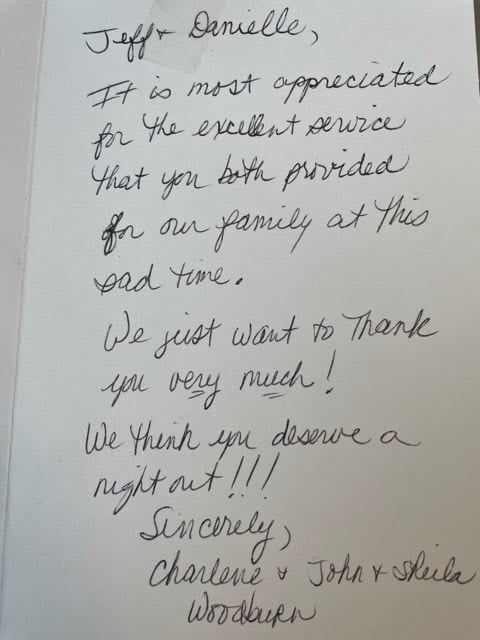 Jeff + Danielle,
It is most appreciated
for the excellent service
that you both provided
for our family at this
sad time.
We just want to Thank
you very much!
We think you deserve a
night out!!!
Sincerely,
Charlene + John + Sheila
Woodburn